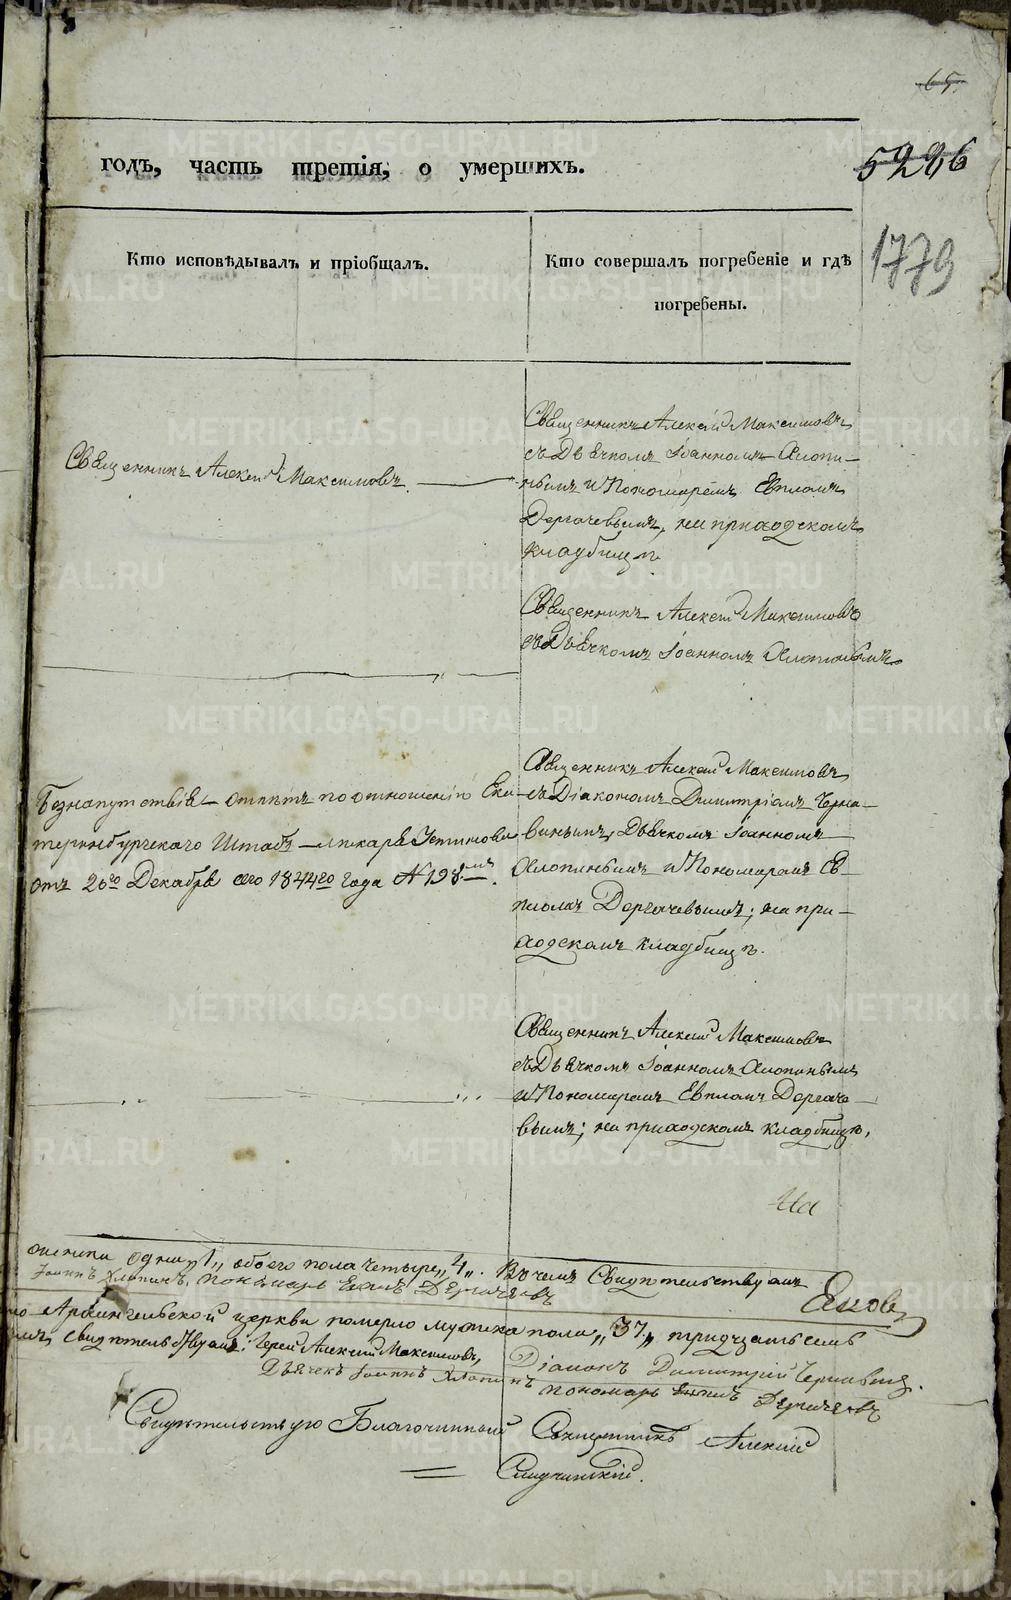 65
годъ, часть третія, о умершихъ.
5226
1779
Кто исповѣдывалъ и пріобщалъ.
Кто совершалъ погребеніе и гдѣ
погребены.
Священникъ Алексій Максимовъ.
Священникъ Алексій Максимовъ
съ Дьячкомъ Іоанномъ Хлопи-
нымъ и Пономаремъ Евпломъ
Дергачевымъ, на приходскомъ
кладбищѣ.
Священникъ Алексій Максимовъ
съ Дьячкомъ Іоанномъ Хлопинымъ
Безнапутствія отпѣтъ по отношенію Ека-
теринбургскаго Штабъ-лѣкаря Устинова
отъ 20го Декабря сего 1844го года № 198мъ.
Священникъ Алексій Максимовъ
съ Діакономъ Димитріемъ Черна-
винымъ, Дьячкомъ Іоанномъ
Хлопинымъ и Пономаремъ Ев-
пломъ Дергачевымъ; на при-
ходскомъ кладбищѣ.
Священникъ Алексій Максимовъ
съ Дьячкомъ Іоанномъ Хлопинымъ
и Пономаремъ Евпломъ Дергаче-
вымъ; на приходскомъ кладбищѣ.
На
одинъ „1„ обоего пола четыре „4„. Въ чемъ Свидѣтельствуемъ
Іоаннъ Хлопинъ. пономарь Евплъ Дергачевъ
Архангельской церкви померло мужеска пола „37„ тридцать семь
свидѣтельствуемъ: Іерей Алексій Максимовъ,
Діаконъ Димитрій Чернавинъ.
Дьячекъ Іоаннъ Хлопинъ
пономарь Евплъ Дергачевъ
Свидѣтельствую Благочинный Священникъ Алексій